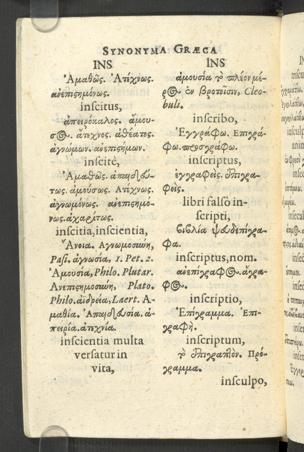 SYNONYMA GRÆCA
INS
Ἀμαθῶς. Ἀτέχνως.
ἀνεπιστημόνως.
inscitus,
ἀπειρόκαλος. ἄμου-
σος. ἄτεχνος. ἀθέατος.
ἀγνώμων. ἀνεπιστήμων.
inscitè,
Ἀμαθῶς. ἀπαιδεύ-
τως. ἀμούσως. Ἀτέχνως.
ἀγνωμόνως. ἀνεπιστημό-
νως. ἀχαρίτως.
inscitia, inscientia,
Ἄνοια. Ἀγνωμοσύνη,
Pass. ἀγνωσία, 1. Pet. 2.
Ἀμουσία, Philo. Plutar.
Ἀνεπιστημοσύνη, Plato.
Philo. ἀϊδρεία, Laert. Ἀ-
μαθία. Ἀπαιδευσία. ἀ-
πειρία. ἀτεχνία.
inscientia multa
versatur in
vita,
INS
ἀμουσία τὸ πλέον μέ-
ρος ἐν βροτοῖσιν. Cleo-
buli.
inscribo,
Ἐγγράφω. Ἐπιγρά-
φω. προσγράφω.
inscriptus,
ἐγγραφείς. ἐπιγρα-
φείς.
libri falso in-
scripti,
βιβλία ψευδεπίγρα-
φα.
inscriptus, nom.
ἀνεπίγραφος. ἄγρα-
φος.
inscriptio,
Ἐπίγραμμα. Ἐπι-
γραφή.
inscriptum,
τὸ ἐπιγραπτόν. Πρό-
γραμμα.
insculpo,